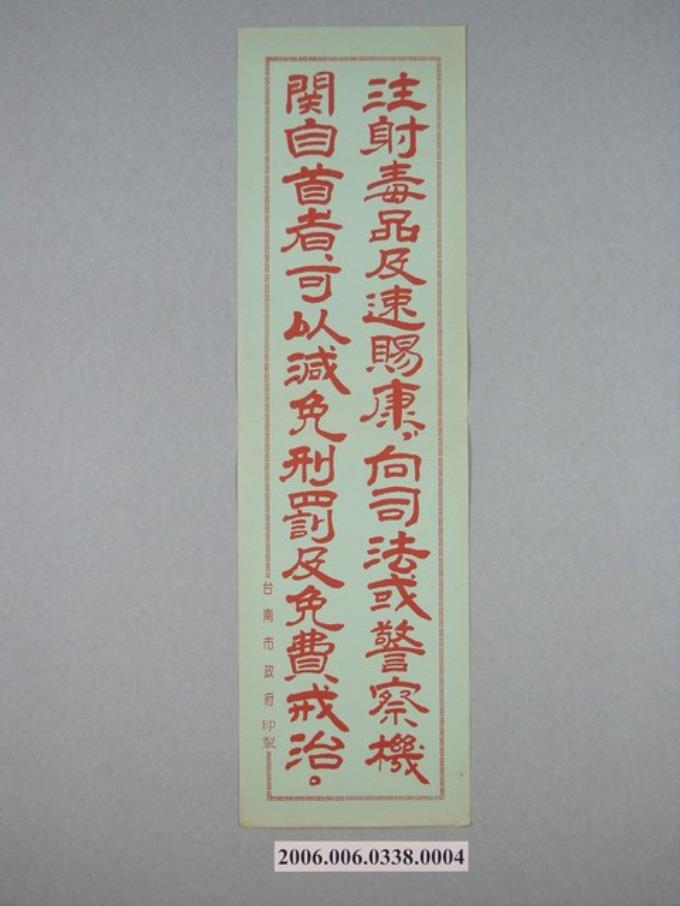 注射毒品及速賜康，向司法或警察機
関自首者、可以減免刑罰及免費戒治。
台南市政府印製
2006.006.0338.0004